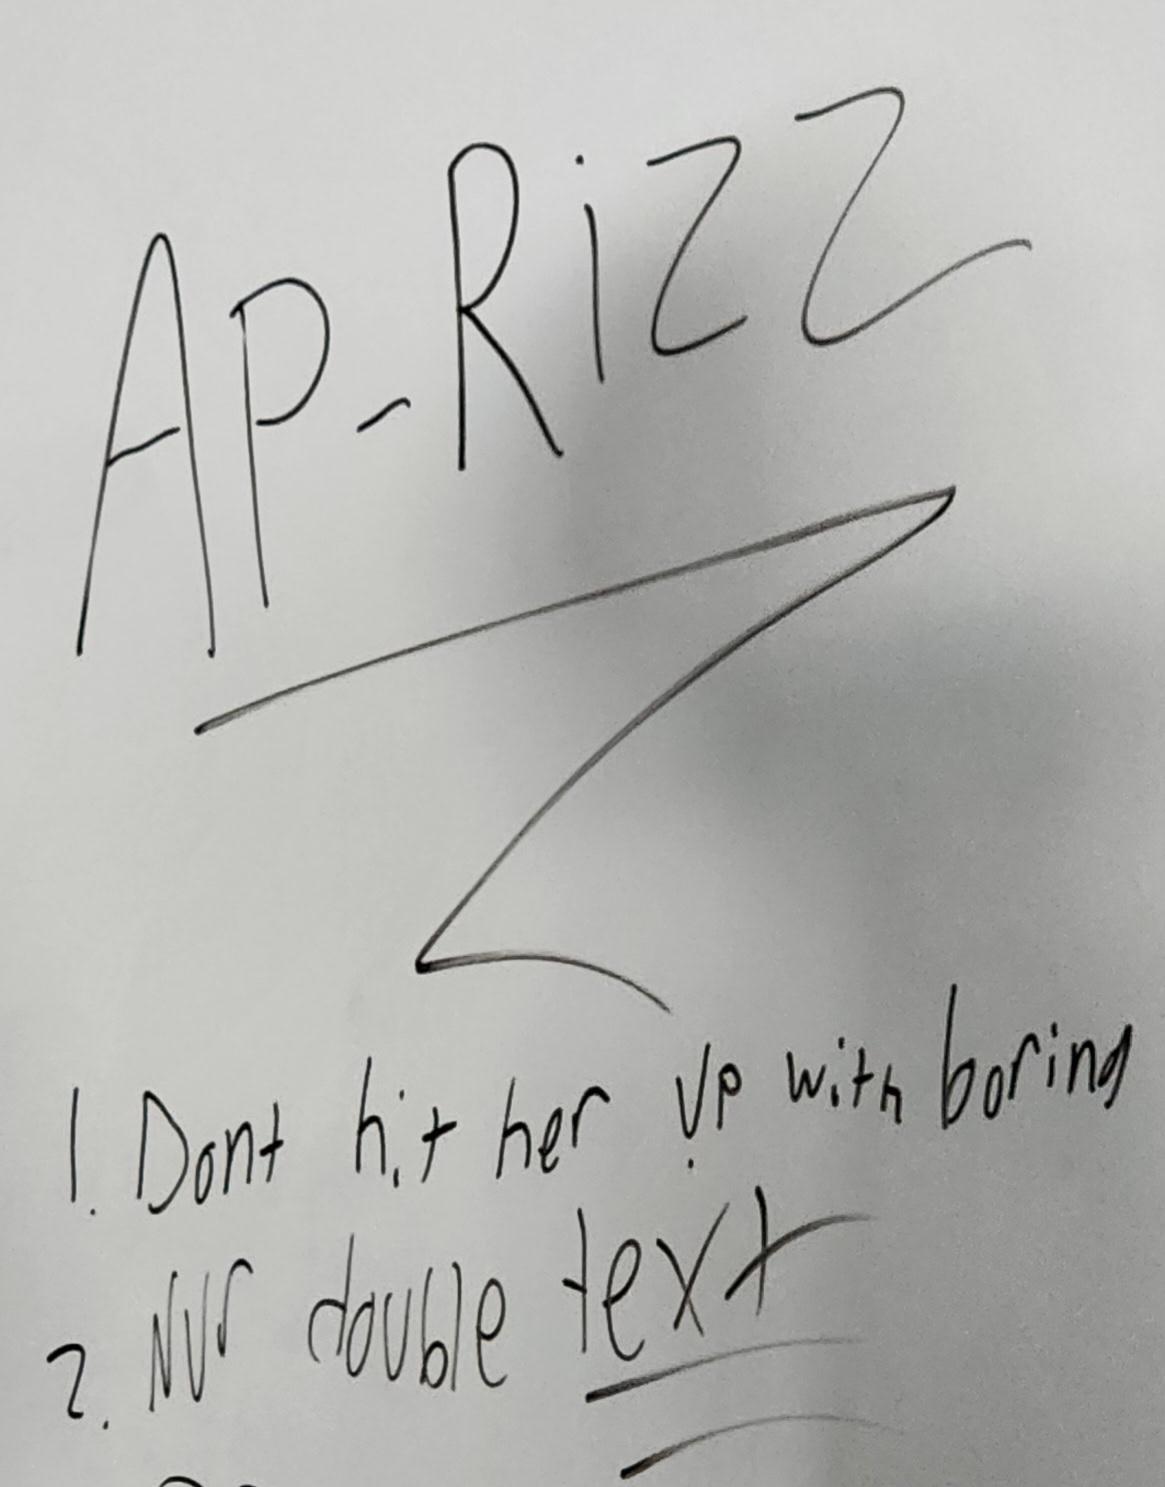 AP-Rizz
1. Dont hit her up with boring
2. Nvr double text